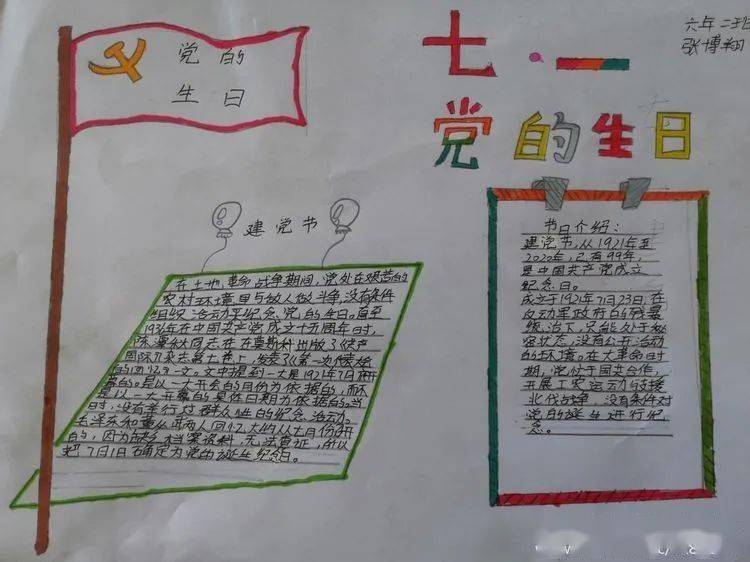 党的
生日
七·一
党的生日
六年二班
张博翔
建党节
在土地革命战争期间,党处在艰苦的
农村环境里与敌人做斗争,没有条件
组织活动来纪念党的生日。直至
1936年在中国共产党成立十五周年时,
陈潭秋同志在莫斯科出版了《共产
国际》杂志
的回忆》一文,文中提到一大是1921年7日
是以一大开会的月份为依据的,而不
是以一大开幕的具体日期为依据的。当
时,没有举行对群众性的纪念活动。
毛泽东和董必武两人回忆
的,因为缺乏档案资料,无法查证,所以
把7月1日确定为党的诞生纪念日。
节日介绍:
建党节,从1921年至
2020年,已有99年,
是中国共产党成立
纪念日。
成立于1921年7月23日,在
反动军政府的残暴
统治下,只能处于秘
密状态,没有公开活动
的环境。在大革命时
期,党处于国共合作,
开展工农运动支援
北伐战争,没有条件对
党的诞生进行纪
念。